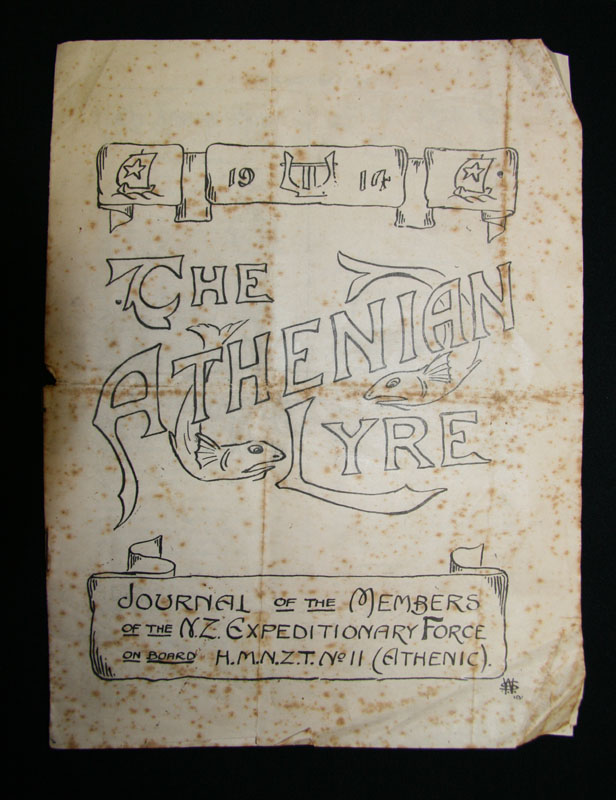 19 14
THE
ATHENIAN
LYRE
JOURNAL OF THE MEMBERS
OF THE N.Z. EXPEDITIONARY FORCE
ON BOARD H.M.N.Z.T. No 11 (ATHENIC).